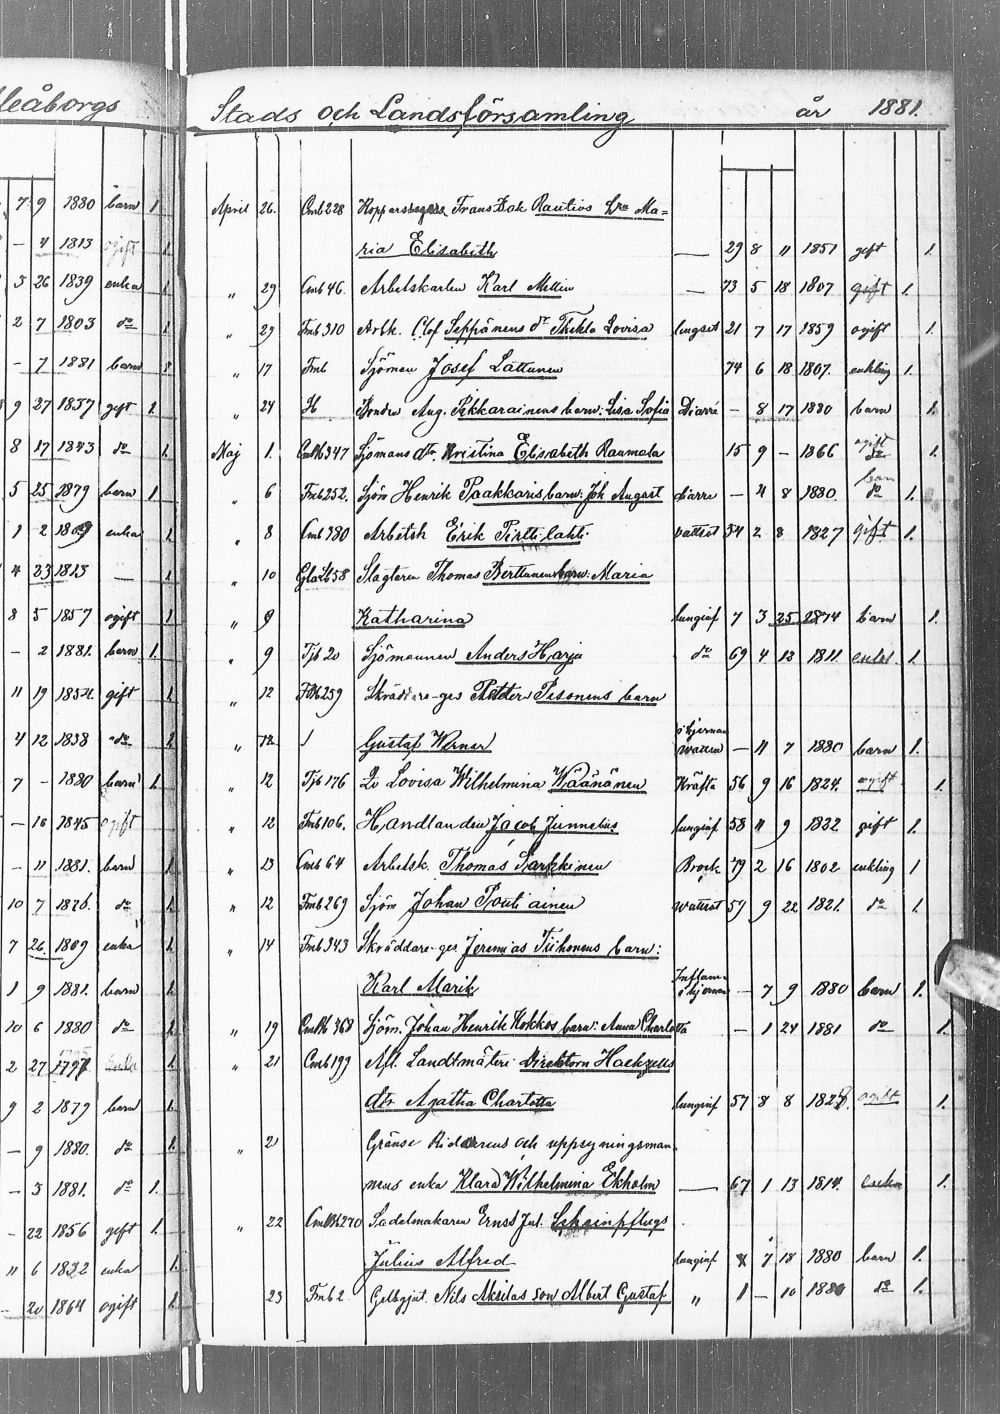 leåborgs
7 9 1880 barn 1.
— 4 1813 ogift 1.
3 26 1839 enka 1.
2 7 1803 do 1.
— 7 1881 barn 1
9 27 1857 gift 1.
8 17 1843 do 1.
5 25 1879 barn 1.
1 2 1809 enka 1
4 23 1813 —
8 5 1857 ogift 1
— 2 1881. barn 1.
11 19 1852 gift 1.
4 12 1838 do 1.
7 — 1880 barn 1
— 16 1845 ogift
— 11 1881. barn 1.
10 7 1826. do 1.
7 26. 1809 enka 1.
1 9 1881. barn 1.
10 6 1880 do 1.
2 27 1797 1.
9 2 1879 barn 1.
— 9 1880. do 1.
— 3 1881. do 1.
— 22 1856 gift 1.
11 6 1832 enka 1.
— 20 1864 ogift 1.
Stads och Landsförsamling år 1881.
April 26. Cmb 228 Frans Isak Rautios Hru Ma=
ria Elisabeth — 29 8 11 1851 gift 1.
„ 29 Cmb 46. Arbetskarlen Karl Mellin — 73 5 18 1807 gift 1.
„ 29 Fmb 310 Arbk. Olof Seppänens dr Thekla Lovisa lungsot 21 7 17 1859 ogift 1.
„ 17 Fmb Sjöman Josef Lattunen 74 6 18 1807. enkling 1.
„ 24 H Aug. Pekkarainens barn: Lisa Sofia Diarré — 8 17 1880 barn 1.
Maj 1. Cmb 347 Sjömans dtr. Kristina Elisabeth Raumala 15 9 — 1866 ogift do 1.
„ 6 Fmb 252. Sjöm Henrik Paakkaris barn: Joh August diarre — 4 8 1880. barn do 1.
„ 8 Cmb 380 Arbetsk Erik Pirttilahti wattsot 54 2 8 1827 gift 1.
„ 10 Slagtaren Thomas Berttunens barn: Maria
„ 9 Katharina lunginf 7 3 25 1874 barn 1.
„ 9 Tjb 20 Sjömannen Anders Harju do 69 4 13 1811. enkl 1.
„ 12 259 Skräddare-ges Petter Pesonens barn
„ 12 1 Gustaf Werner i hjernan watten — 11 7 1880 barn 1.
„ 12 Tjb 176 Lovisa Wilhelmina Wäänänen Kräfta 56 9 16 1824. ogift 1.
„ 12 Fmb 106. Handlanden Jacob Junnelius lunginf 58 11 9 1822 gift 1.
„ 13 Cmb 64 Arbetsk. Thomas Sarkkinen Brock 79 2 16 1802 enkling 1
„ 12 Fmb 269 Sjöm Johan Pouti ainen wattsot 59 9 22 1821. do 1.
„ 14 Fmb 343 Skräddare-ges Jeremias Tiihonens barn:
Karl Marik Inflam i hjernan — 7 9 1880 barn 1.
„ 19 Cmb 368 Sjöm. Johan Henrik Kokkos barn: Anna Charlotta — 1 24 1881 do 1.
„ 21 Cmb 199 Afl. Landtmäteri Direktorn Hackzells
dtr Agatha Charlotta lunginf 57 8 8 1823. ogift 1.
„ 21 Gränse Ridarens och uppsyningsman-
nens enka Klara Wilhelmina Ekholm — 67 1 13 1814. enka 1.
„ 22 Cmb 270 Sadelmakaren Ernst Jul. Scheinpflugs
Julius Alfred lunginf 8 7 18 1880 barn 1.
23 Fmb 2 Gelbgjut. Nils Aksilas son Albert Gustaf „ 1 — 10 1880 do 1.